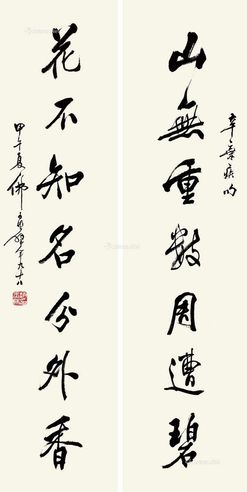 山無重數周遭碧
辛棄疾句
花不知名分外香
甲午夏佛